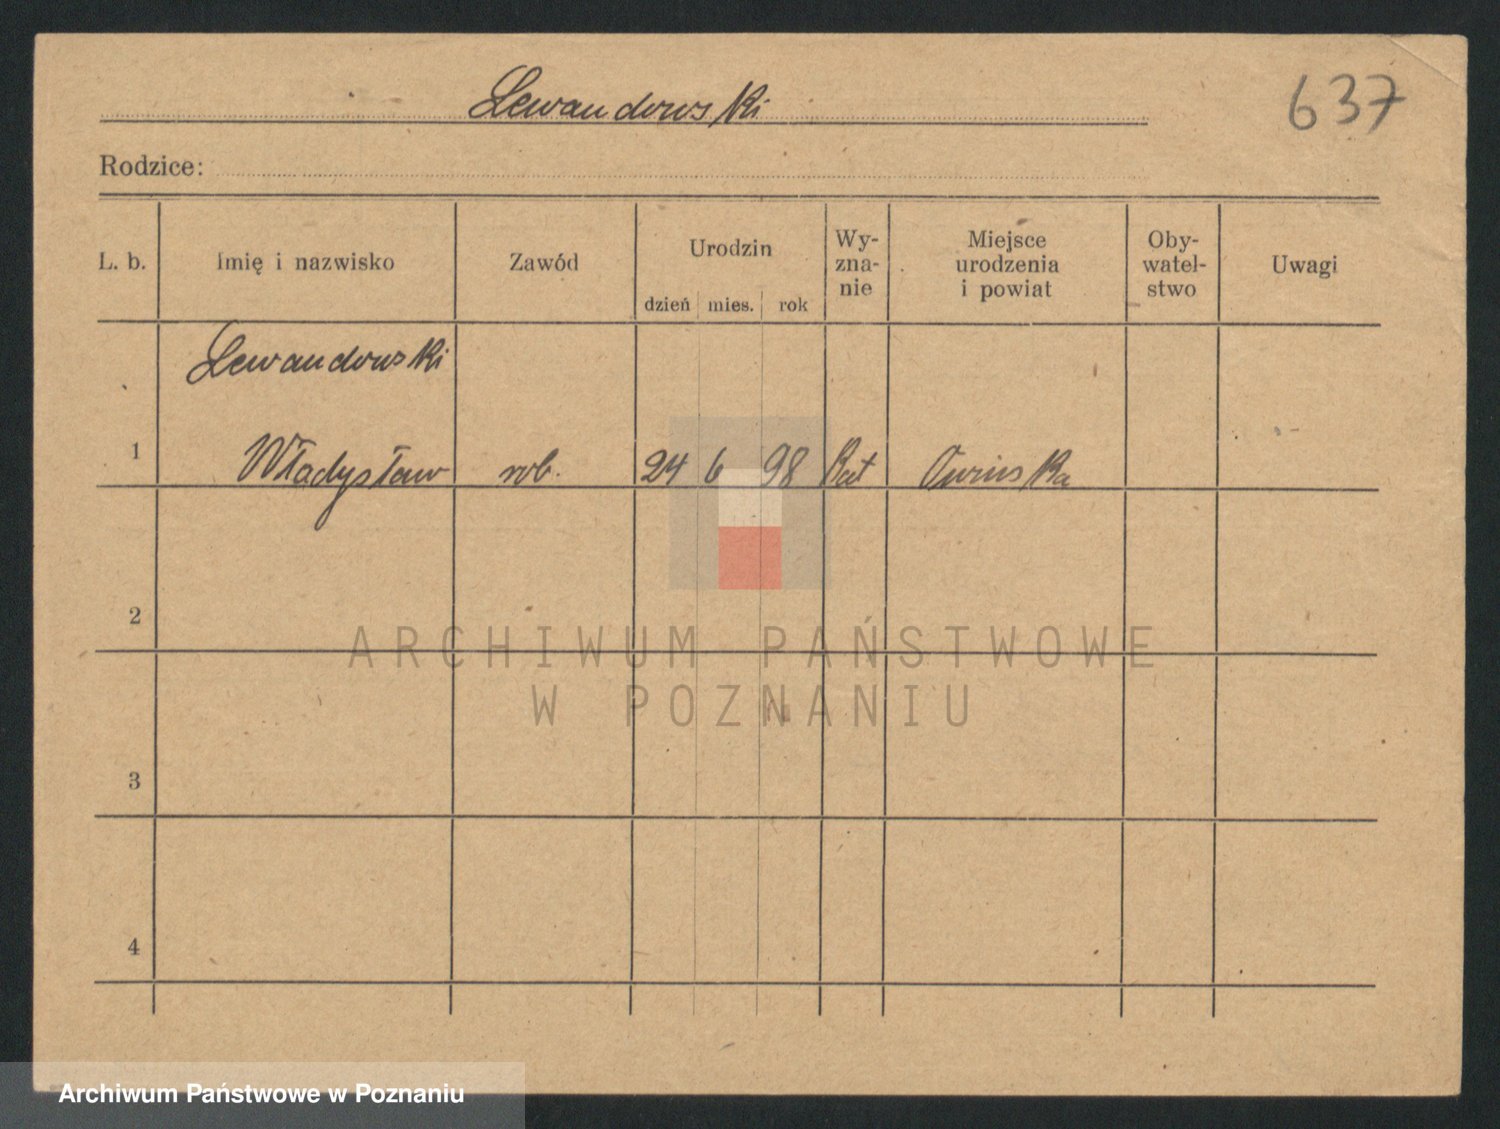 Lewandowski
637
Rodzice:
L. b.
Imię i nazwisko
Zawód
Urodzin
dzień mies. rok
Wy-
zna-
nie
Miejsce
urodzenia
i powiat
Oby-
watel-
stwo
Uwagi
Lewandowski
1 Władysław rob. 24 6 98 Kat
2
3
4
ARCHIWUM PAŃSTWOWE
W POZNANIU
Archiwum Państwowe w Poznaniu